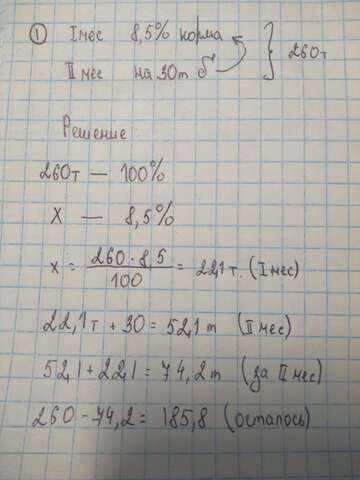 ① I мес 8,5% корма
II мес на 30т б
260т
Решение
260т — 100%
X — 8,5%
x = 260 · 8,5 / 100 = 22,1 т. (I мес)
22,1т + 30 = 52,1 т (II мес)
52,1 + 22,1 = 74,2 т (за II мес)
260 - 74,2 = 185,8 (осталось)